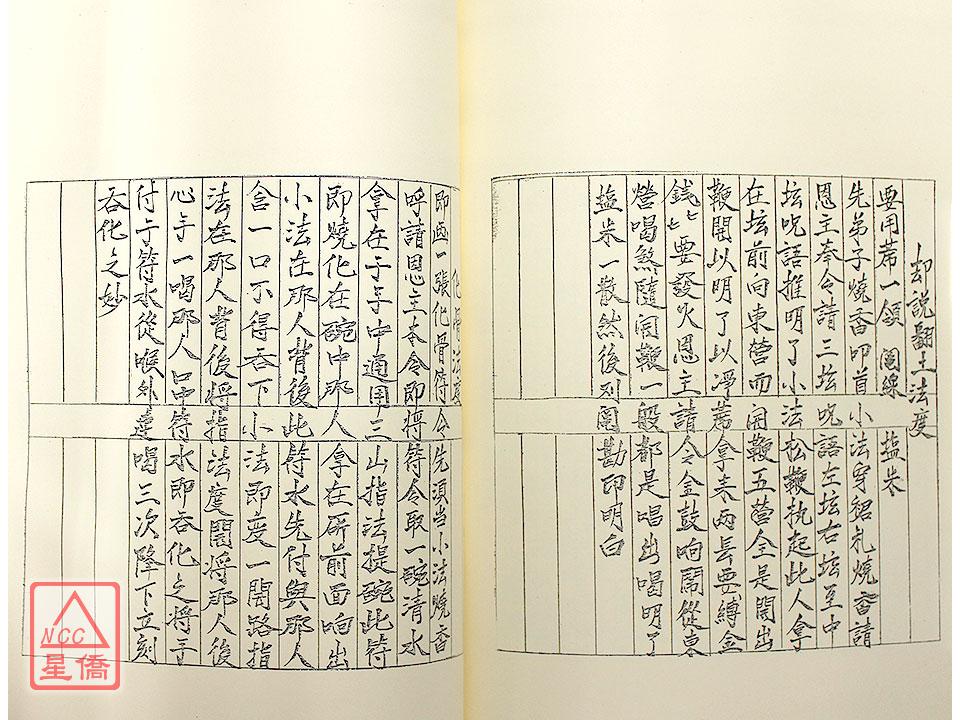 却說翻土法度
要用蓆一領 圖線 塩米
先弟子燒香叩首小法穿貂礼燒香請
恩主奉令請三坛咒語左坛右坛至中
坛咒語推明了小法松鞭執起此人拿
在坛前向東營而開鞭五营全是開出
鞭開以明了以凈蓆拿來兩長要縛金
錢 要發火恩主請令金鼓响鬧從東
營喝煞隨開鞭一般都是唱出喝明了
塩米一散然後列勘印明白
化骨法度
即画一張化骨符令先須当小法燒香
呼請恩主本令即將符令取一碗清水
拿在于手中通用三山指法提碗此符
即燒化在碗中那人拿在研前面响出
小法在那人背後此符水先付與那人
含一口不得吞下小法即度一開路指
法在那人背後將指法度開將那人後
心手一喝那人口中符水即吞化之將手
付于符水從喉外邊喝三次降下立刻
吞化之妙
NCC
星僑